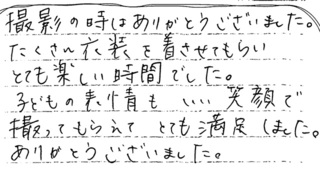 撮影の時はありがとうございました。
たくさん衣装を着させてもらい
とても楽しい時間でした。
子どもの表情も いい 笑顔で
撮ってもらえて とても満足しました。
ありがとうございました。